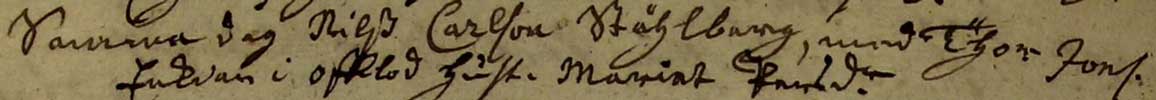 Samma dag Nilß Carlson Ståhlberg, med Thor Jons.
Enkian i offlod hust. Mariet Persdr